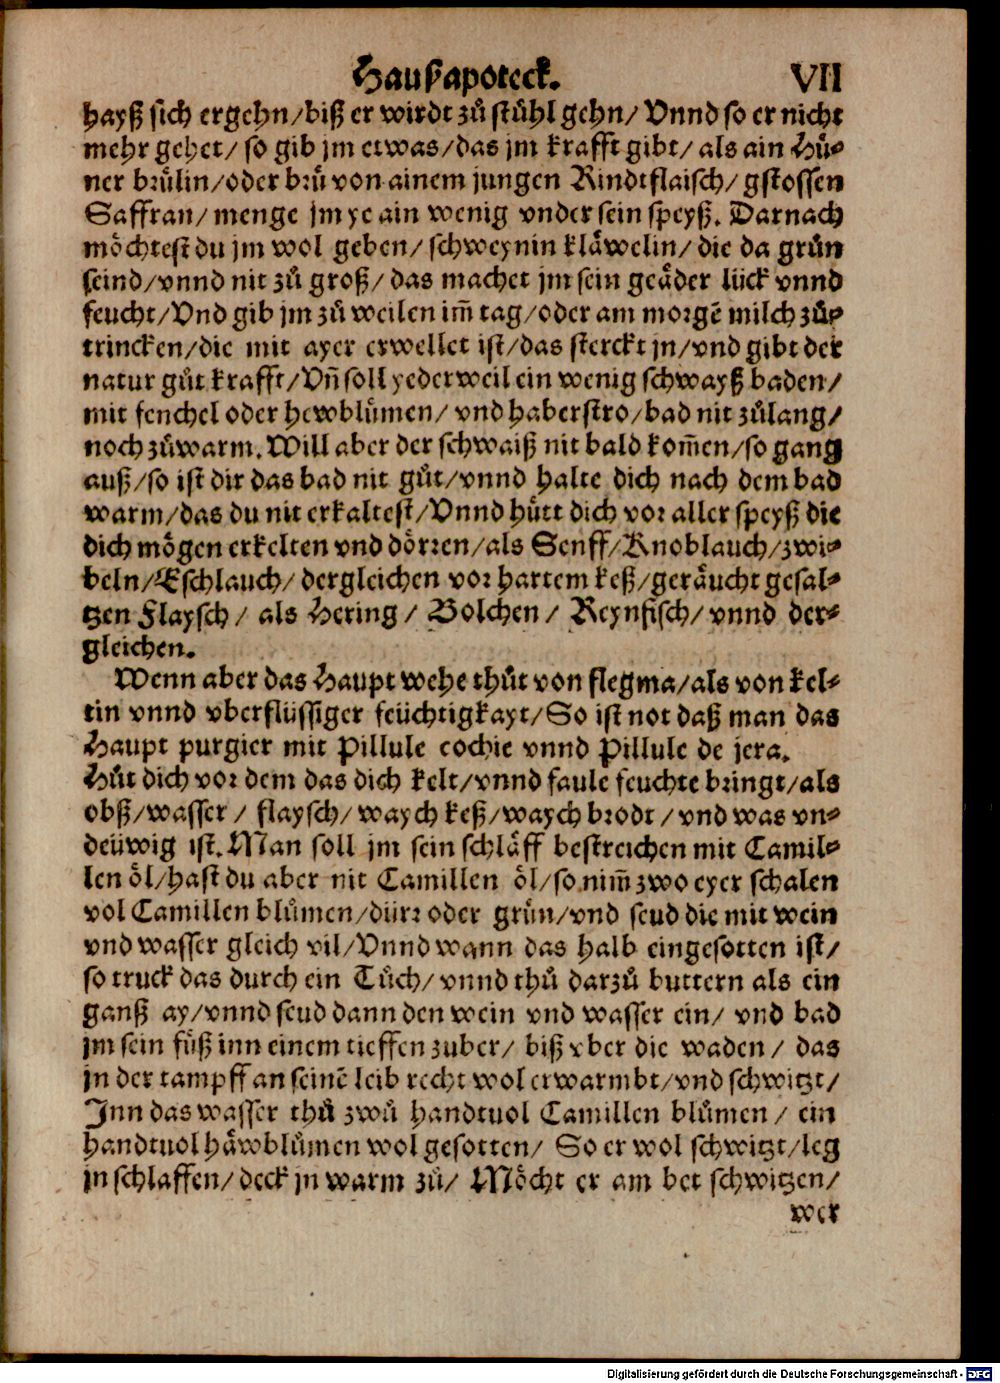 Hauſzapoteck. VII
hayß sich ergehn/biß er wirdt zů stůhl gehn/ Vnnd so er nicht
mehr gehet/ so gib jm etwas/das jm krafft gibt/ als ain Hů-
ner brůlin/oder brů von ainem jungen Rindtflaisch/ gstossen
Saffran/ menge jm ye ain wenig vnder sein speyß. Darnach
möchtest du jm wol geben/ schweynin kläwelin/ die da grün
seind/vnnd nit zů groß/ das machet jm sein geäder lück vnnd
feucht/Vnd gib jm zů weilen im̃ tag/oder am morgẽ milch zů-
trincken/die mit ayer erwellet ist/das sterckt jn/vnd gibt der
natur gůt krafft/Vñ soll yederweil ein wenig schwayß baden/
mit fenchel oder hewblůmen/ vnd haberstro/bad nit zůlang/
noch zůwarm. Will aber der schwaiß nit bald kom̃en/so gang
auß/so ist dir das bad nit gůt/vnnd halte dich nach dem bad
warm/das du nit erkaltest/Vnnd hütt dich vor aller speyß die
dich mögen erkelten vnd dörren/als Senff/Knoblauch/zwi-
beln/Eschlauch/ dergleichen vor hartem keß/geräucht gesal-
tzen Flaysch/ als Hering/ Bolchen/ Reynfisch/ vnnd der-
gleichen.
Wenn aber das Haupt wehe thůt von flegma/als von kel-
tin vnnd vberflüssiger feüchtigkayt/So ist not daß man das
Haupt purgier mit Pillule cochie vnnd Pillule de jera.
Hüt dich vor dem das dich kelt/vnnd faule feuchte bringt/als
obß/wasser/ flaysch/waych keß/waych brodt/vnd was vn-
deüwig ist. Man soll jm sein schläff bestreichen mit Camil-
len öl/hast du aber nit Camillen öl/so nim̃ zwo eyer schalen
vol Camillen blůmen/dürr oder grün/vnd seud die mit wein
vnd wasser gleich vil/Vnnd wann das halb eingesotten ist/
so truck das durch ein Tůch/vnnd thů darzů buttern als ein
ganß ay/vnnd seud dann den wein vnd wasser ein/ vnd bad
jm sein füß inn einem tieffen zuber/ biß vber die waden/ das
jn der tampff an seinẽ leib recht wol erwarmbt/vnd schwitzt/
Inn das wasser thů zwů handtuol Camillen blůmen/ ein
handtuol häwblůmen wol gesotten/ So er wol schwitzt/leg
jn schlaffen/deck jn warm zů/ Möcht er am bet schwitzen/
wer
Digitalisierung gefördert durch die Deutsche Forschungsgemeinschaft - DFG